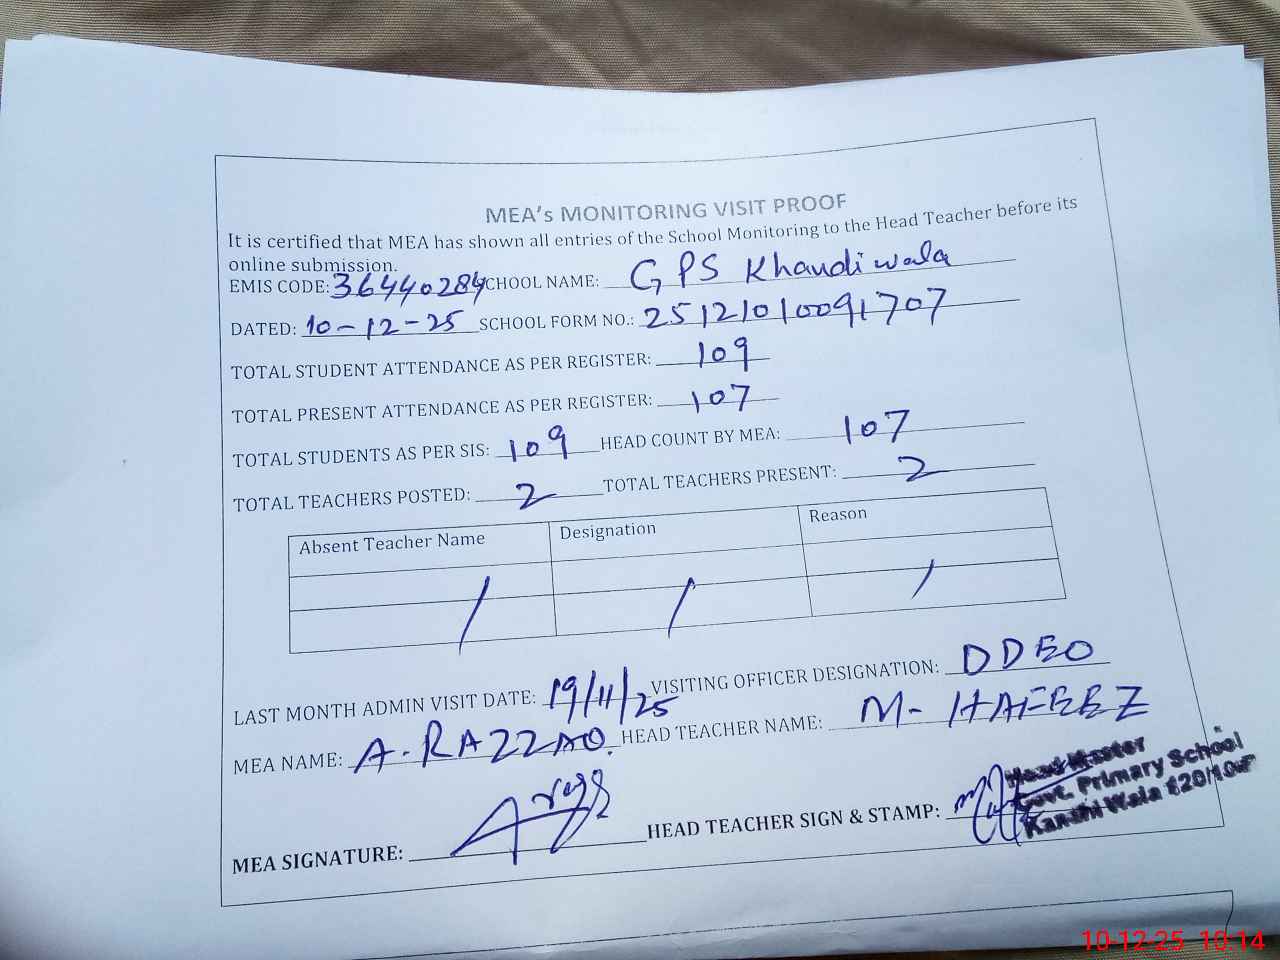 MEA's MONITORING VISIT PROOF
It is certified that MEA has shown all entries of the School Monitoring to the Head Teacher before its
online submission.
EMIS CODE: 36440284 SCHOOL NAME: GPS Khandiwala
DATED: 10-12-25 SCHOOL FORM NO.: 25121010091707
TOTAL STUDENT ATTENDANCE AS PER REGISTER: 109
TOTAL PRESENT ATTENDANCE AS PER REGISTER: 107
TOTAL STUDENTS AS PER SIS: 109 HEAD COUNT BY MEA: 107
TOTAL TEACHERS POSTED: 2 TOTAL TEACHERS PRESENT: 2
Absent Teacher Name Designation Reason
/ / /
LAST MONTH ADMIN VISIT DATE: 19/11/25 VISITING OFFICER DESIGNATION: DDEO
MEA NAME: A.RAZZAQ. HEAD TEACHER NAME: M-HAFEEZ
MEA SIGNATURE: HEAD TEACHER SIGN & STAMP:
Head Master
Govt. Primary School
Kandhi Wala
10-12-25 10:14